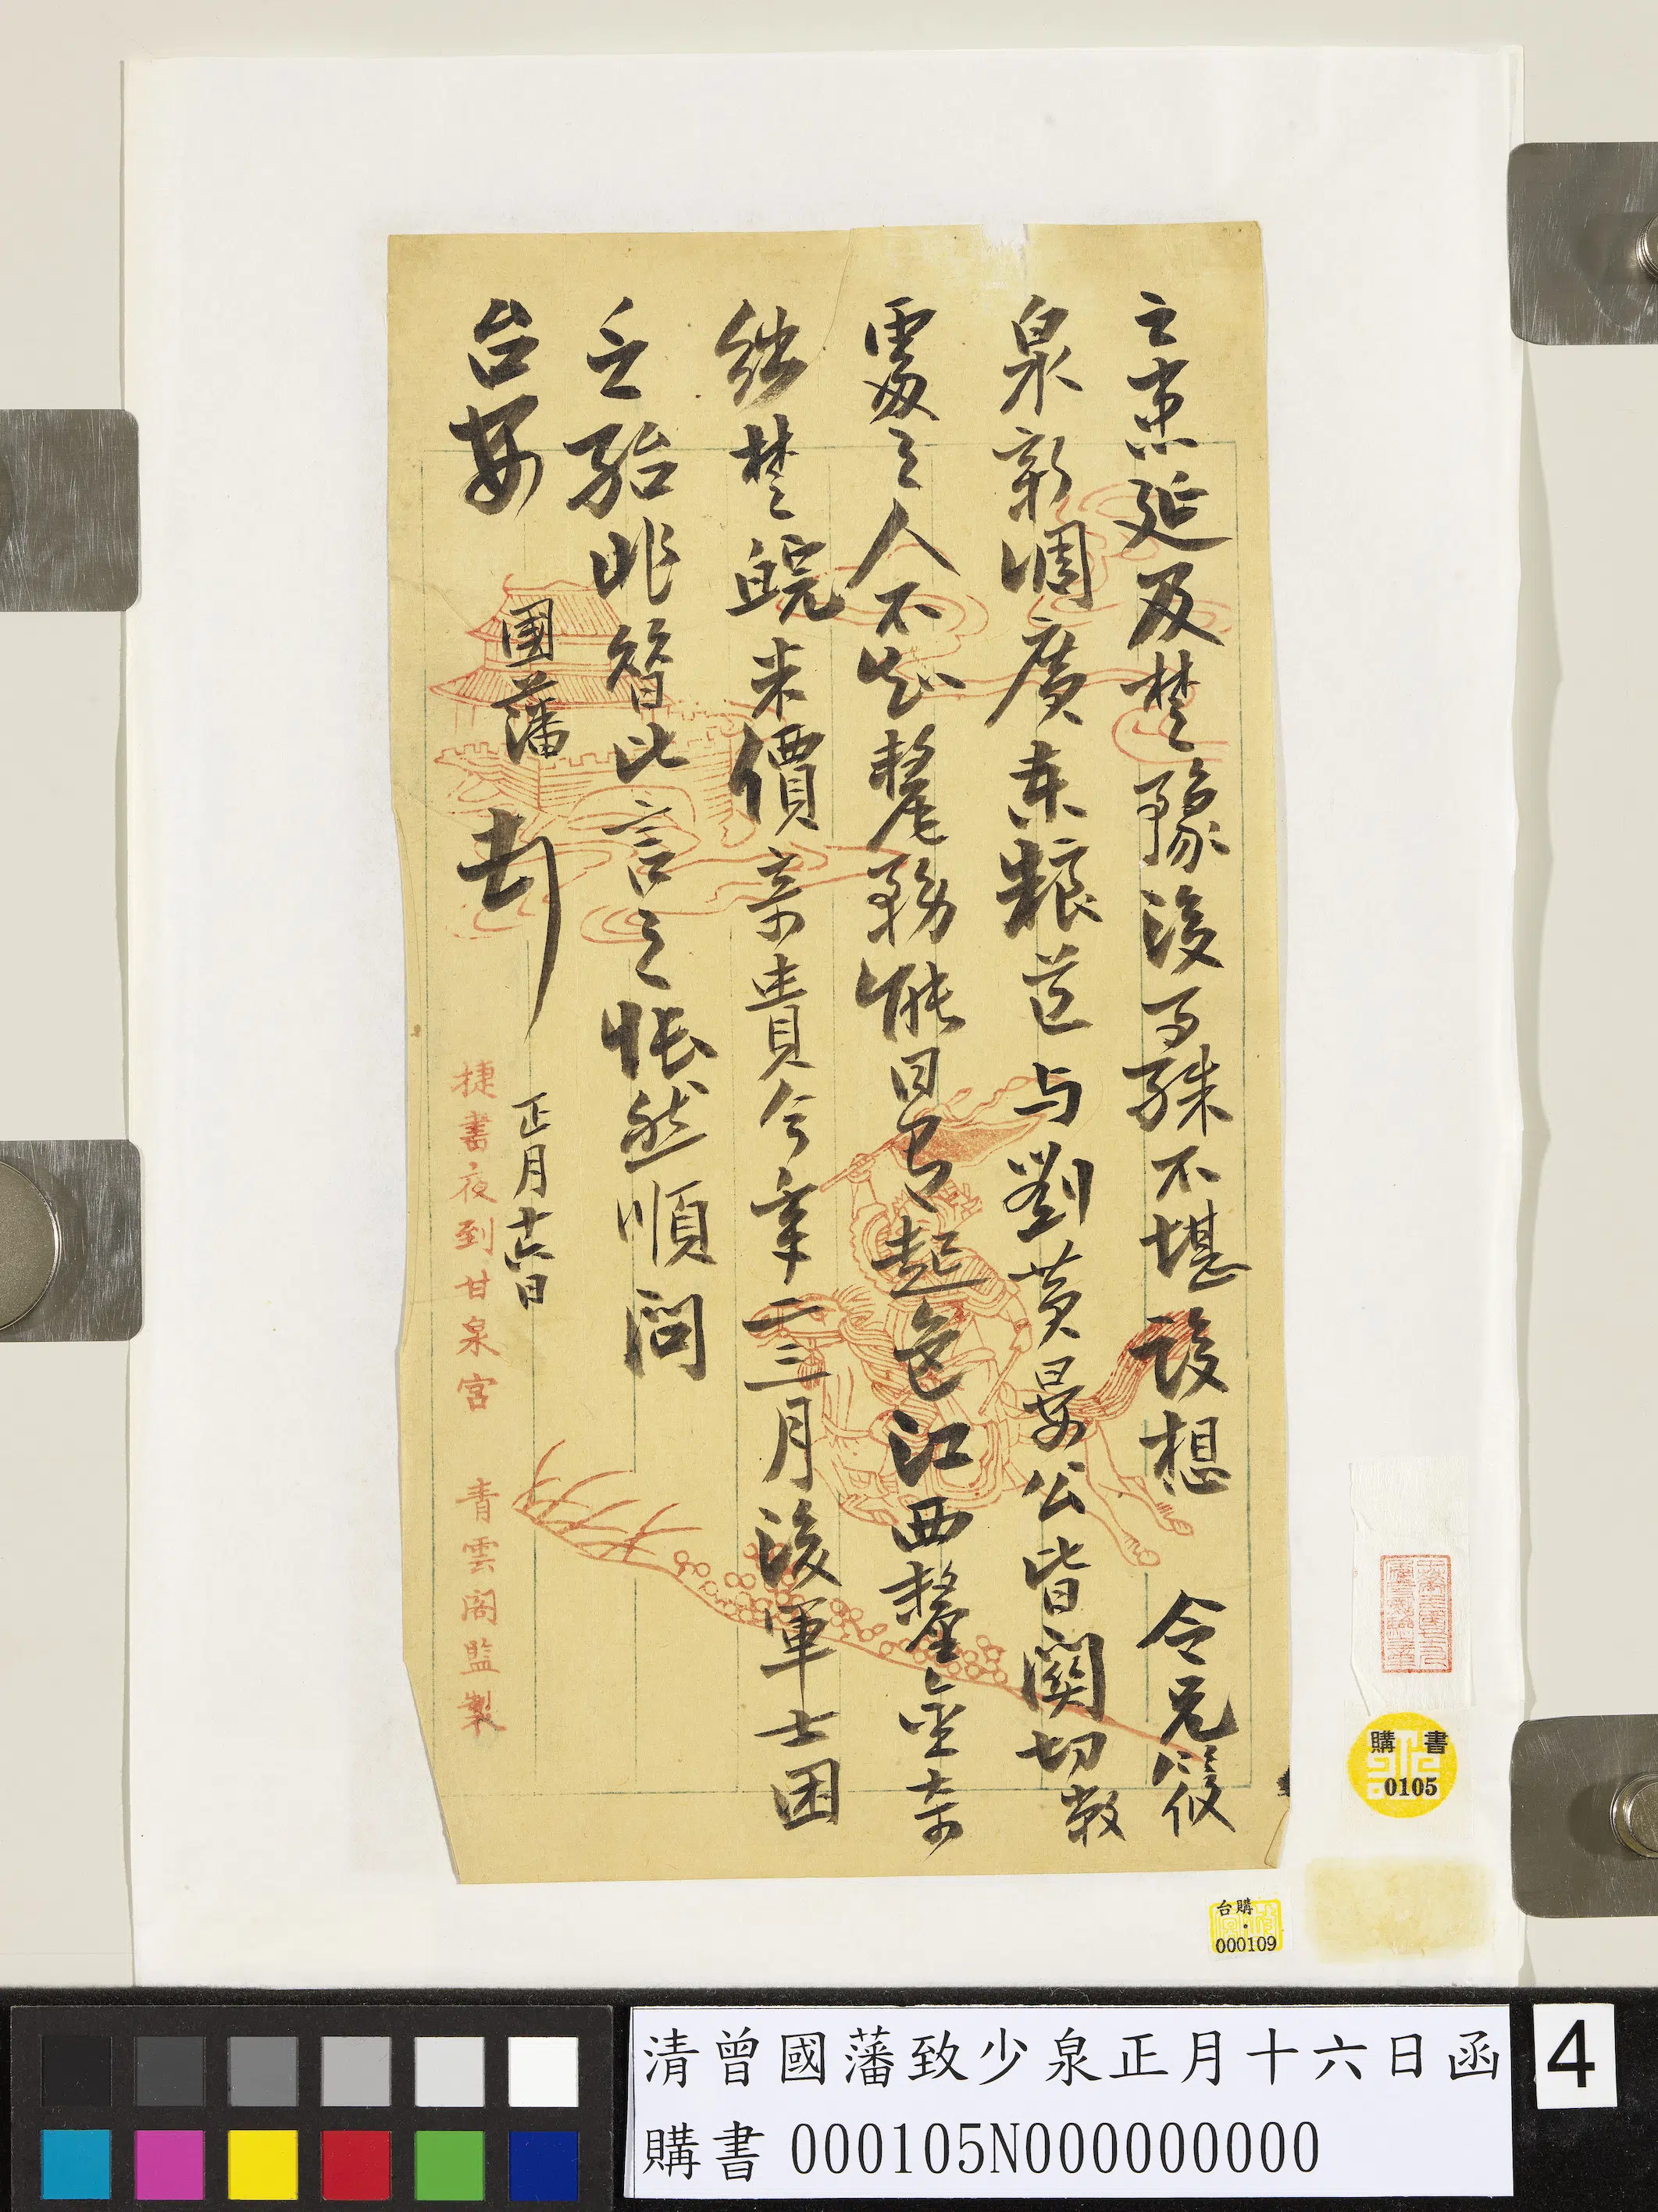 之延及楚豫後事殊不堪設想 令兄筱
泉新調廣東糧道与劉黃晏公皆關切敝
處之人不知釐務能日有起色江西釐金奇
絀楚皖米價奇貴今年二三月後軍士困
乏殆非比言之悵然順問
台安 國藩 正月十六日
捷書夜到甘泉宮 青雲閣監製
購書
0105
台購
000109
清曾國藩致少泉正月十六日函
購書 000105N000000000
4